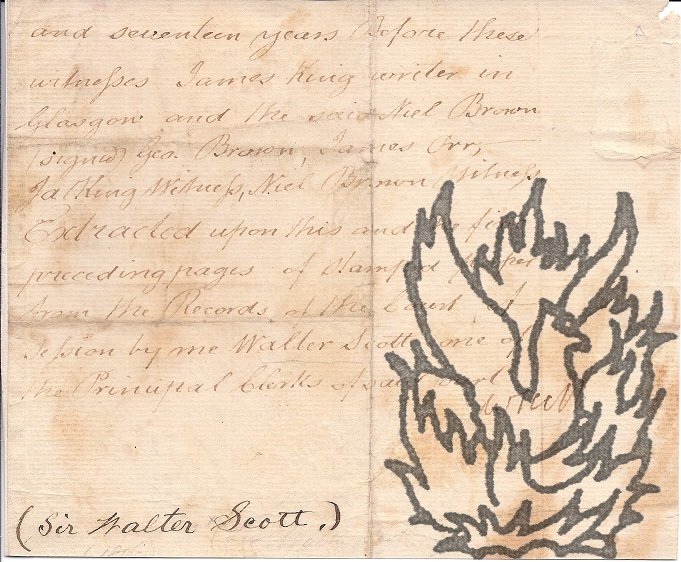 and seventeen years Before these
witnesses James King writer in
Glasgow and the said Niel Brown
(signed) Geo. Brown, James Orr,
Ja King Witness, Niel Brown Witness
Extracted upon this and the five
preceding pages of Stamped paper
from the Records of the Court of
Session by me Walter Scott one of
the Principal Clerks of said Court
(Sir Walter Scott.)